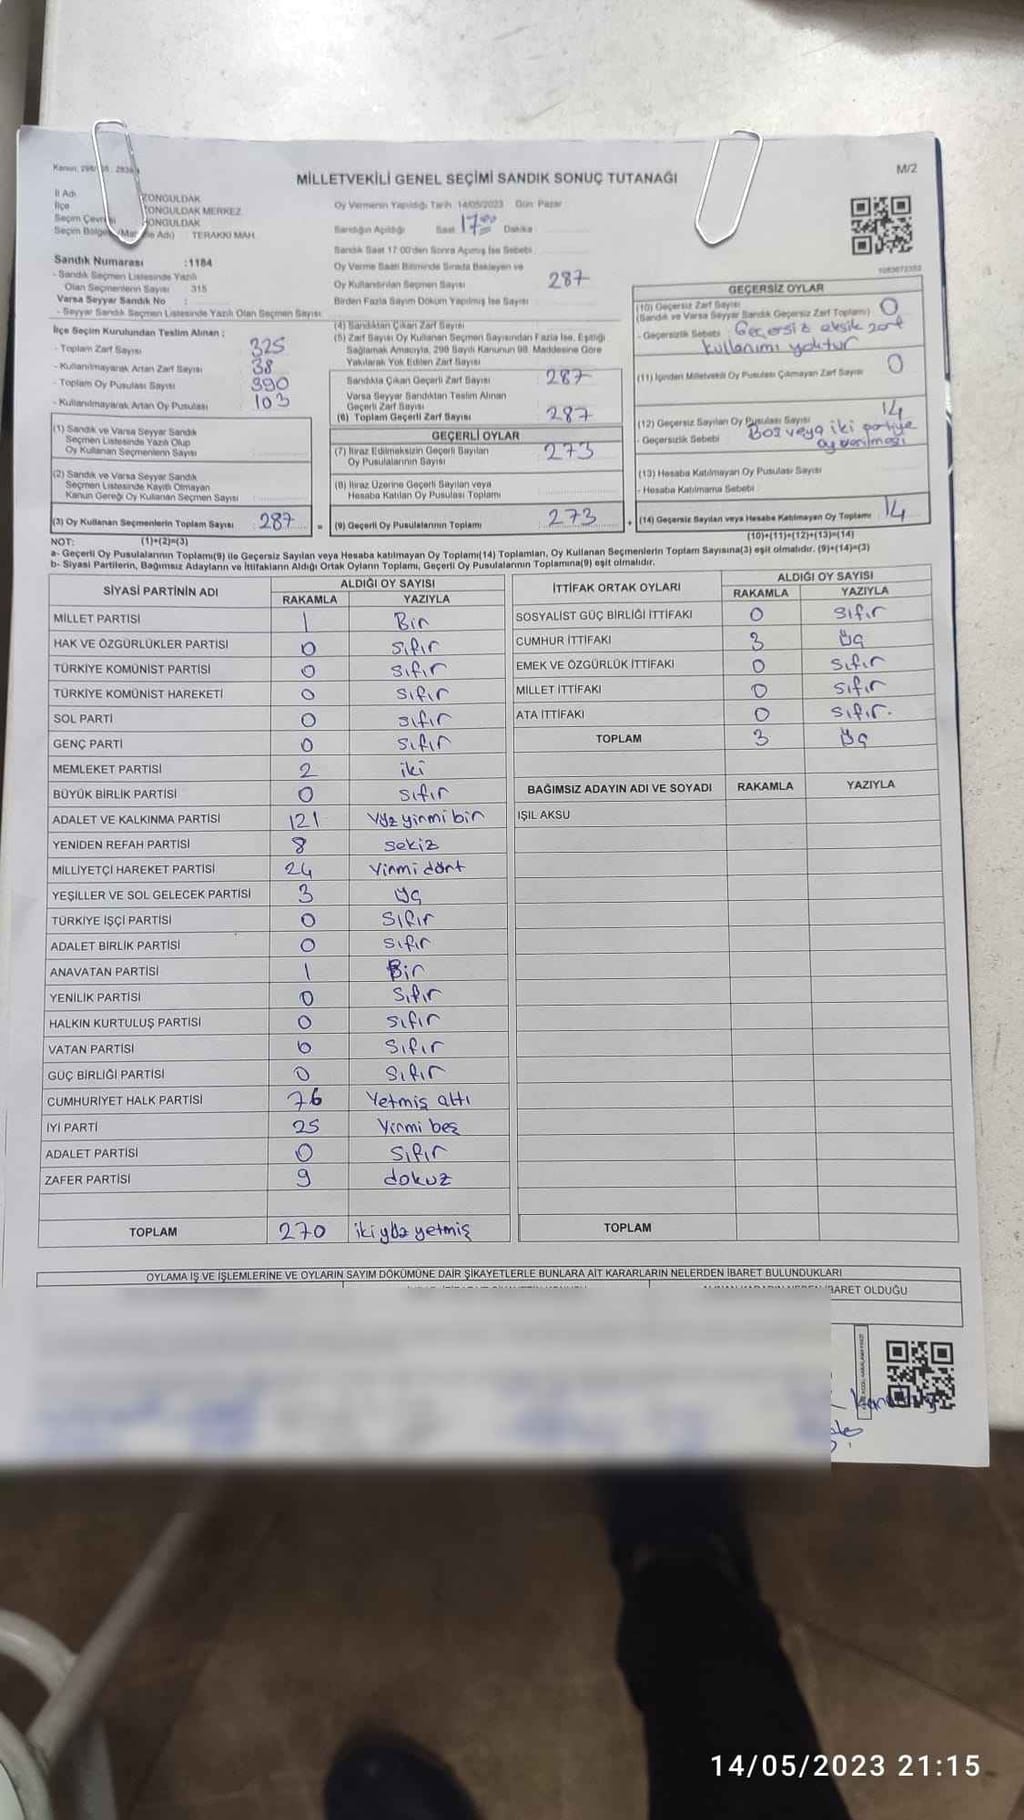 MİLLETVEKİLİ GENEL SEÇİMİ SANDIK SONUÇ TUTANAĞI
M/2
İl Adı ZONGULDAK
İlçe ZONGULDAK MERKEZ
Seçim Çevresi ZONGULDAK
TERAKKİ MAH.
Oy Vermenin Yapıldığı Tarih 14/05/2023 Gün Pazar
Sandığın Açıldığı Saat 17:00 Dakika
Sandık Saat 17.00'den Sonra Açılmış İse Sebebi
Sandık Numarası :1184
- Sandık Seçmen Listesinde Yazılı
Olan Seçmenlerin Sayısı 315
Varsa Seyyar Sandık No :
- Seyyar Sandık Seçmen Listesinde Yazılı Olan Seçmen Sayısı
Oy Verme Saati Bitiminde Sırada Bekleyen ve
Oy Kullandırılan Seçmen Sayısı 287
Birden Fazla Sayım Döküm Yapılmış İse Sayısı
İlçe Seçim Kurulundan Teslim Alınan :
- Toplam Zarf Sayısı 325
- Kullanılmayarak Artan Zarf Sayısı 38
- Toplam Oy Pusulası Sayısı 390
- Kullanılmayarak Artan Oy Pusulası 103
(1) Sandık ve Varsa Seyyar Sandık
Seçmen Listesinde Yazılı Olup
Oy Kullanan Seçmenlerin Sayısı
(2) Sandık ve Varsa Seyyar Sandık
Seçmen Listesinde Kayıtlı Olmayan
Kanun Gereği Oy Kullanan Seçmen Sayısı
(3) Oy Kullanan Seçmenlerin Toplam Sayısı 287
(4) Sandıktan Çıkan Zarf Sayısı
(5) Zarf Sayısı Oy Kullanan Seçmen Sayısından Fazla İse, Eşitliği
Sağlamak Amacıyla, 298 Sayılı Kanunun 98. Maddesine Göre
Yakılarak Yok Edilen Zarf Sayısı
Sandıkta Çıkan Geçerli Zarf Sayısı 287
Varsa Seyyar Sandıktan Teslim Alınan
Geçerli Zarf Sayısı
(6) Toplam Geçerli Zarf Sayısı 287
GEÇERLİ OYLAR
(7) İtiraz Edilmeksizin Geçerli Sayılan
Oy Pusulalarının Sayısı 273
(8) İtiraz Üzerine Geçerli Sayılan veya
Hesaba Katılan Oy Pusulası Toplamı
= (9) Geçerli Oy Pusulalarının Toplamı 273
GEÇERSİZ OYLAR
(10) Geçersiz Zarf Sayısı
(Sandık ve Varsa Seyyar Sandık Geçersiz Zarf Toplamı) 0
- Geçersizlik Sebebi Geçersiz eksik zarf
kullanımı yoktur
(11) İçinden Milletvekili Oy Pusulası Çıkmayan Zarf Sayısı 0
(12) Geçersiz Sayılan Oy Pusulası Sayısı 14
- Geçersizlik Sebebi Boş veya iki partiye
oy verilmesi
(13) Hesaba Katılmayan Oy Pusulası Sayısı
- Hesaba Katılmama Sebebi
+ (14) Geçersiz Sayılan veya Hesaba Katılmayan Oy Toplamı 14
NOT: (1)+(2)=(3)
(10)+(11)+(12)+(13)=(14)
a- Geçerli Oy Pusulalarının Toplamı(9) ile Geçersiz Sayılan veya Hesaba katılmayan Oy Toplamı(14) Toplamları, Oy Kullanan Seçmenlerin Toplam Sayısına(3) eşit olmalıdır. (9)+(14)=(3)
b- Siyasi Partilerin, Bağımsız Adayların ve İttifakların Aldığı Ortak Oyların Toplamı, Geçerli Oy Pusulalarının Toplamına(9) eşit olmalıdır.
SİYASİ PARTİNİN ADI ALDIĞI OY SAYISI
RAKAMLA YAZIYLA
MİLLET PARTİSİ 1 Bir
HAK VE ÖZGÜRLÜKLER PARTİSİ 0 sıfır
TÜRKİYE KOMÜNİST PARTİSİ 0 sıfır
TÜRKİYE KOMÜNİST HAREKETİ 0 sıfır
SOL PARTİ 0 sıfır
GENÇ PARTİ 0 sıfır
MEMLEKET PARTİSİ 2 iki
BÜYÜK BİRLİK PARTİSİ 0 sıfır
ADALET VE KALKINMA PARTİSİ 121 Yüz yirmi bir
YENİDEN REFAH PARTİSİ 8 sekiz
MİLLİYETÇİ HAREKET PARTİSİ 24 Yirmi dört
YEŞİLLER VE SOL GELECEK PARTİSİ 3 üç
TÜRKİYE İŞÇİ PARTİSİ 0 sıfır
ADALET BİRLİK PARTİSİ 0 sıfır
ANAVATAN PARTİSİ 1 Bir
YENİLİK PARTİSİ 0 sıfır
HALKIN KURTULUŞ PARTİSİ 0 sıfır
VATAN PARTİSİ 0 sıfır
GÜÇ BİRLİĞİ PARTİSİ 0 sıfır
CUMHURİYET HALK PARTİSİ 76 Yetmiş altı
İYİ PARTİ 25 Yirmi beş
ADALET PARTİSİ 0 sıfır
ZAFER PARTİSİ 9 dokuz
TOPLAM 270 iki yüz yetmiş
İTTİFAK ORTAK OYLARI ALDIĞI OY SAYISI
RAKAMLA YAZIYLA
SOSYALİST GÜÇ BİRLİĞİ İTTİFAKI 0 sıfır
CUMHUR İTTİFAKI 3 üç
EMEK VE ÖZGÜRLÜK İTTİFAKI 0 sıfır
MİLLET İTTİFAKI 0 sıfır
ATA İTTİFAKI 0 sıfır.
TOPLAM 3 üç
BAĞIMSIZ ADAYIN ADI VE SOYADI RAKAMLA YAZIYLA
IŞIL AKSU
TOPLAM
OYLAMA İŞ VE İŞLEMLERİNE VE OYLARIN SAYIM DÖKÜMÜNE DAİR ŞİKAYETLERLE BUNLARA AİT KARARLARIN NELERDEN İBARET BULUNDUKLARI
İBARET OLDUĞU
14/05/2023 21:15